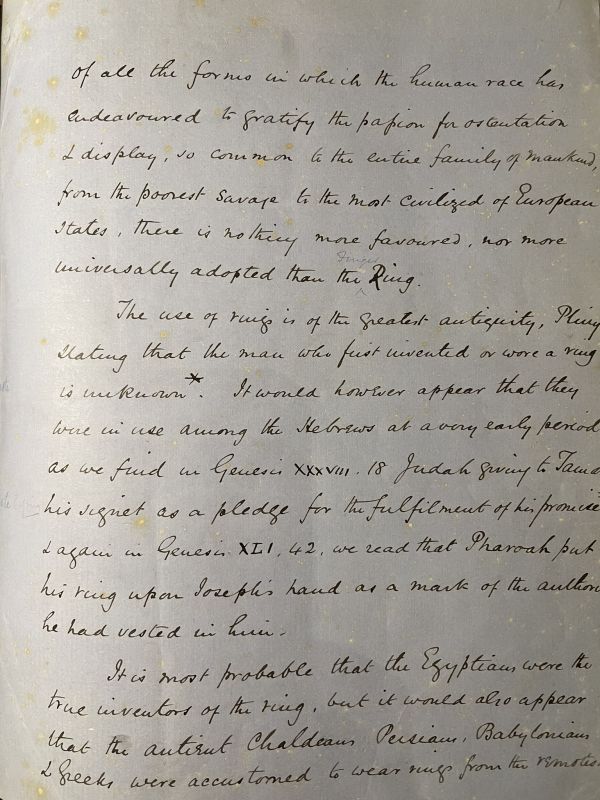 of all the forms in which the human race has
endeavoured to gratify the passion for ostentation
& display, so common to the entire family of mankind,
from the poorest savage to the most civilized of European
states, there is nothing more favoured, nor more
Finger
universally adopted than the Ring.
The use of rings is of the greatest antiquity, Pliny
stating that the man who first invented or wore a ring
is unknown*. It would however appear that they
were in use among the Hebrews at a very early period
as we find in Genesis XXXVIII. 18 Judah giving to Tama
his signet as a pledge for the fulfilment of his promise
& again in Genesis XLI, 42, we read that Pharoah put
his ring upon Joseph's hand as a mark of the authori
he had vested in him.
It is most probable that the Egyptians were the
true inventors of the ring, but it would also appear
that the antient Chaldeans, Persians, Babylonians
& Greeks were accustomed to wear rings from the remotes